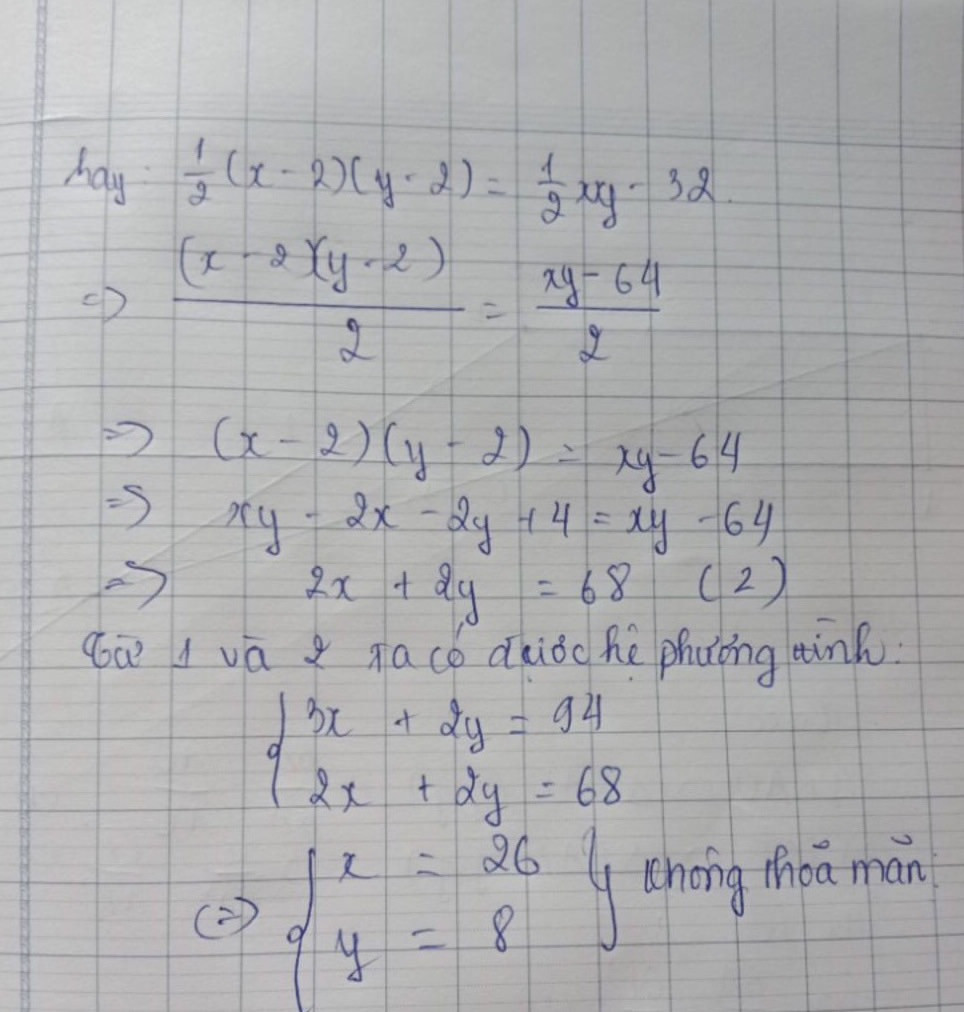 hay: 1/2 (x - 2)(y - 2) = 1/2 xy - 32.
=> (x - 2)(y - 2) / 2 = xy - 64 / 2
=> (x - 2)(y - 2) = xy - 64
=> xy - 2x - 2y + 4 = xy - 64
=> 2x + 2y = 68 (2)
Từ 1 và 2 ta có được hệ phương trình:
{ 3x + 2y = 94
2x + 2y = 68
(=) { x = 26 } không thoả mãn.
y = 8